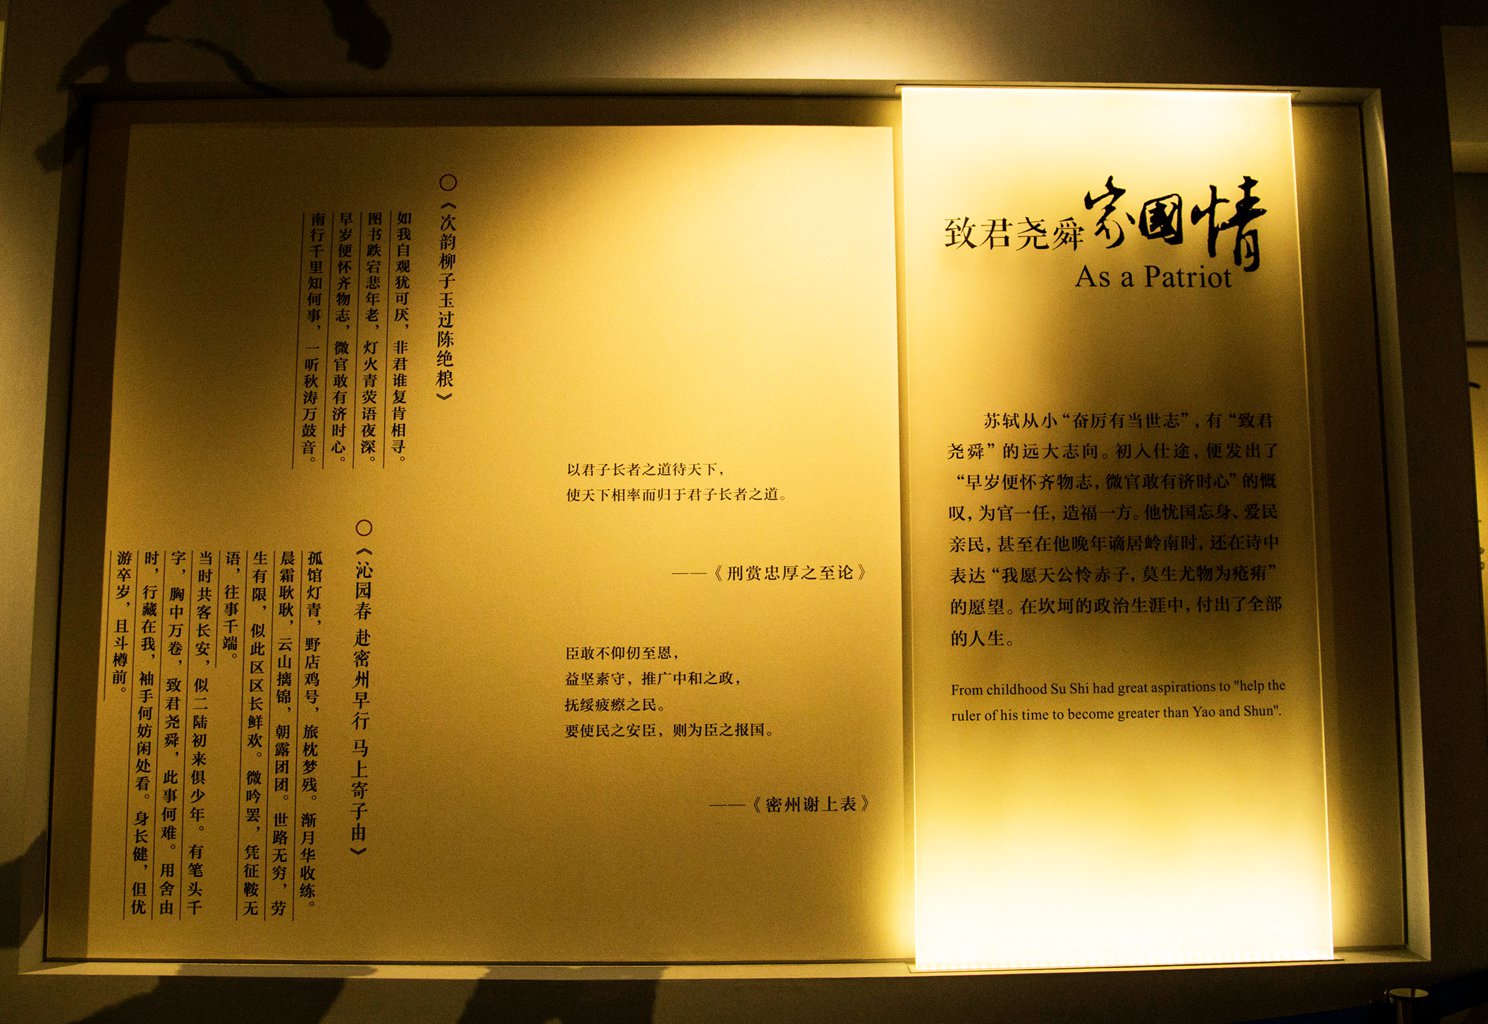 致君尧舜家國情
As a Patriot
苏轼从小“奋厉有当世志”，有“致君
尧舜”的远大志向。初入仕途，便发出了
“早岁便怀齐物志，微官敢有济时心”的慨
叹，为官一任，造福一方。他忧国忘身、爱民
亲民，甚至在他晚年谪居岭南时，还在诗中
表达“我愿天公怜赤子，莫生尤物为疮痏”
的愿望。在坎坷的政治生涯中，付出了全部
的人生。
From childhood Su Shi had great aspirations to "help the
ruler of his time to become greater than Yao and Shun".
以君子长者之道待天下，
使天下相率而归于君子长者之道。
——《刑赏忠厚之至论》
臣敢不仰仞至恩，
益坚素守，推广中和之政，
抚绥疲瘵之民。
要使民之安臣，则为臣之报国。
——《密州谢上表》
○《次韵柳子玉过陈绝粮》
如我自观犹可厌，非君谁复肯相寻。
图书跌宕悲年老，灯火青荧语夜深。
早岁便怀齐物志，微官敢有济时心。
南行千里知何事，一听秋涛万鼓音。
○《沁园春 赴密州早行 马上寄子由》
孤馆灯青，野店鸡号，旅枕梦残。渐月华收练，
晨霜耿耿，云山摛锦，朝露团团。世路无穷，劳
生有限，似此区区长鲜欢。微吟罢，凭征鞍无
语，往事千端。
当时共客长安，似二陆初来俱少年。有笔头千
字，胸中万卷，致君尧舜，此事何难。用舍由
时，行藏在我，袖手何妨闲处看。身长健，但优
游卒岁，且斗樽前。